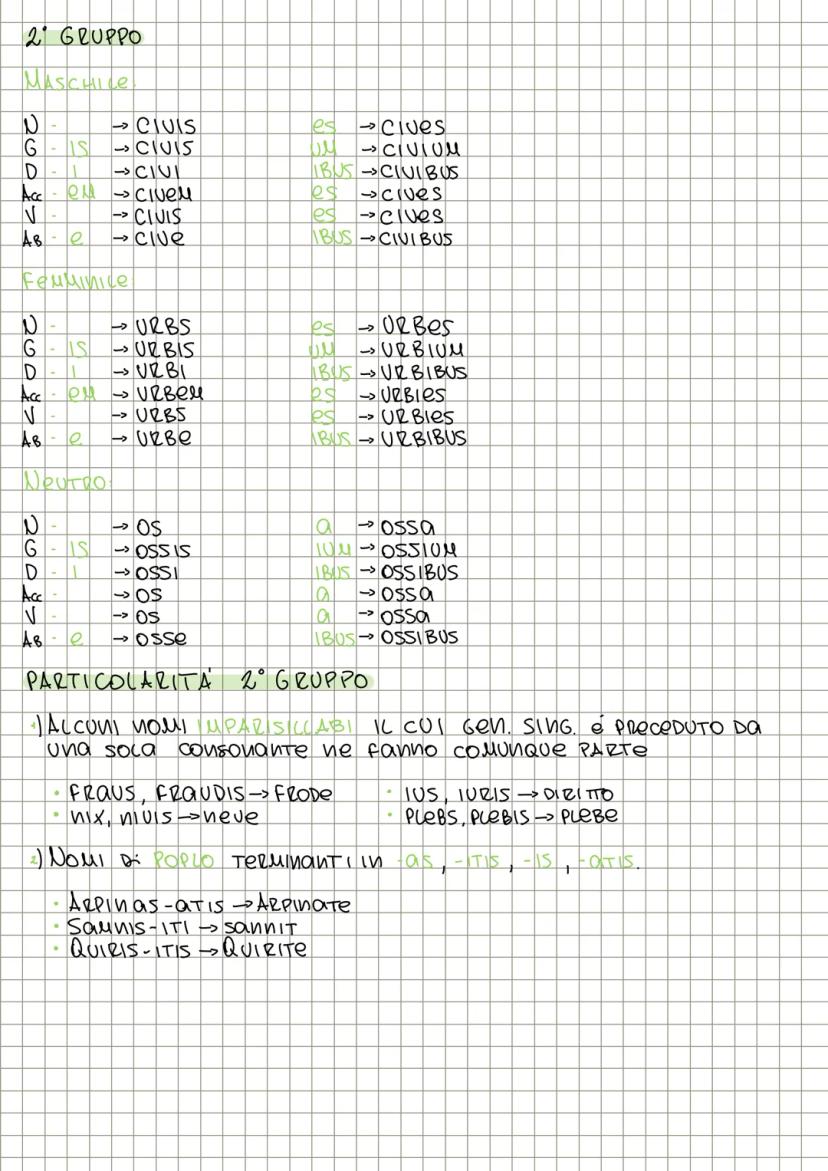 2° GRUPPO
MASCHILE:
N - → CIVIS es → CIVES
G - IS → CIVIS UM → CIVIUM
D - I → CIVI IBUS → CIVIBUS
Acc - em → CIVEM es → CIVES
V - → CIVIS es → CIVES
AB - e → CIVE IBUS → CIVIBUS
FEMMINILE:
N - → URBS es → URBES
G - IS → URBIS UM → URBIUM
D - I → URBI IBUS → URBIBUS
Acc - em → URBEM es → URBIES
V - → URBS es → URBIES
AB - e → URBE IBUS → URBIBUS
NEUTRO:
N - → OS a → OSSA
G - IS → OSSIS IUM → OSSIUM
D - I → OSSI IBUS → OSSIBUS
Acc - → OS a → OSSA
V - → OS a → OSSA
AB - e → OSSE IBUS → OSSIBUS
PARTICOLARITÀ 2° GRUPPO
1) ALCUNI NOMI IMPARISILLABI IL CUI GEN. SING. É PRECEDUTO DA
UNA SOLA CONSONANTE NE FANNO COMUNQUE PARTE
• FRAUS, FRAUDIS → FRODE • IUS, IURIS → DIRITTO
• NIX, NIVIS → NEVE • PLEBS, PLEBIS → PLEBE
2) NOMI DI POPLO TERMINANTI IN -as, -ITIS, -IS, -aTIS.
• ARPINAS-ATIS → ARPINATE
• SAMNIS-ITI → SANNIT
• QUIRIS-ITIS → QUIRITE